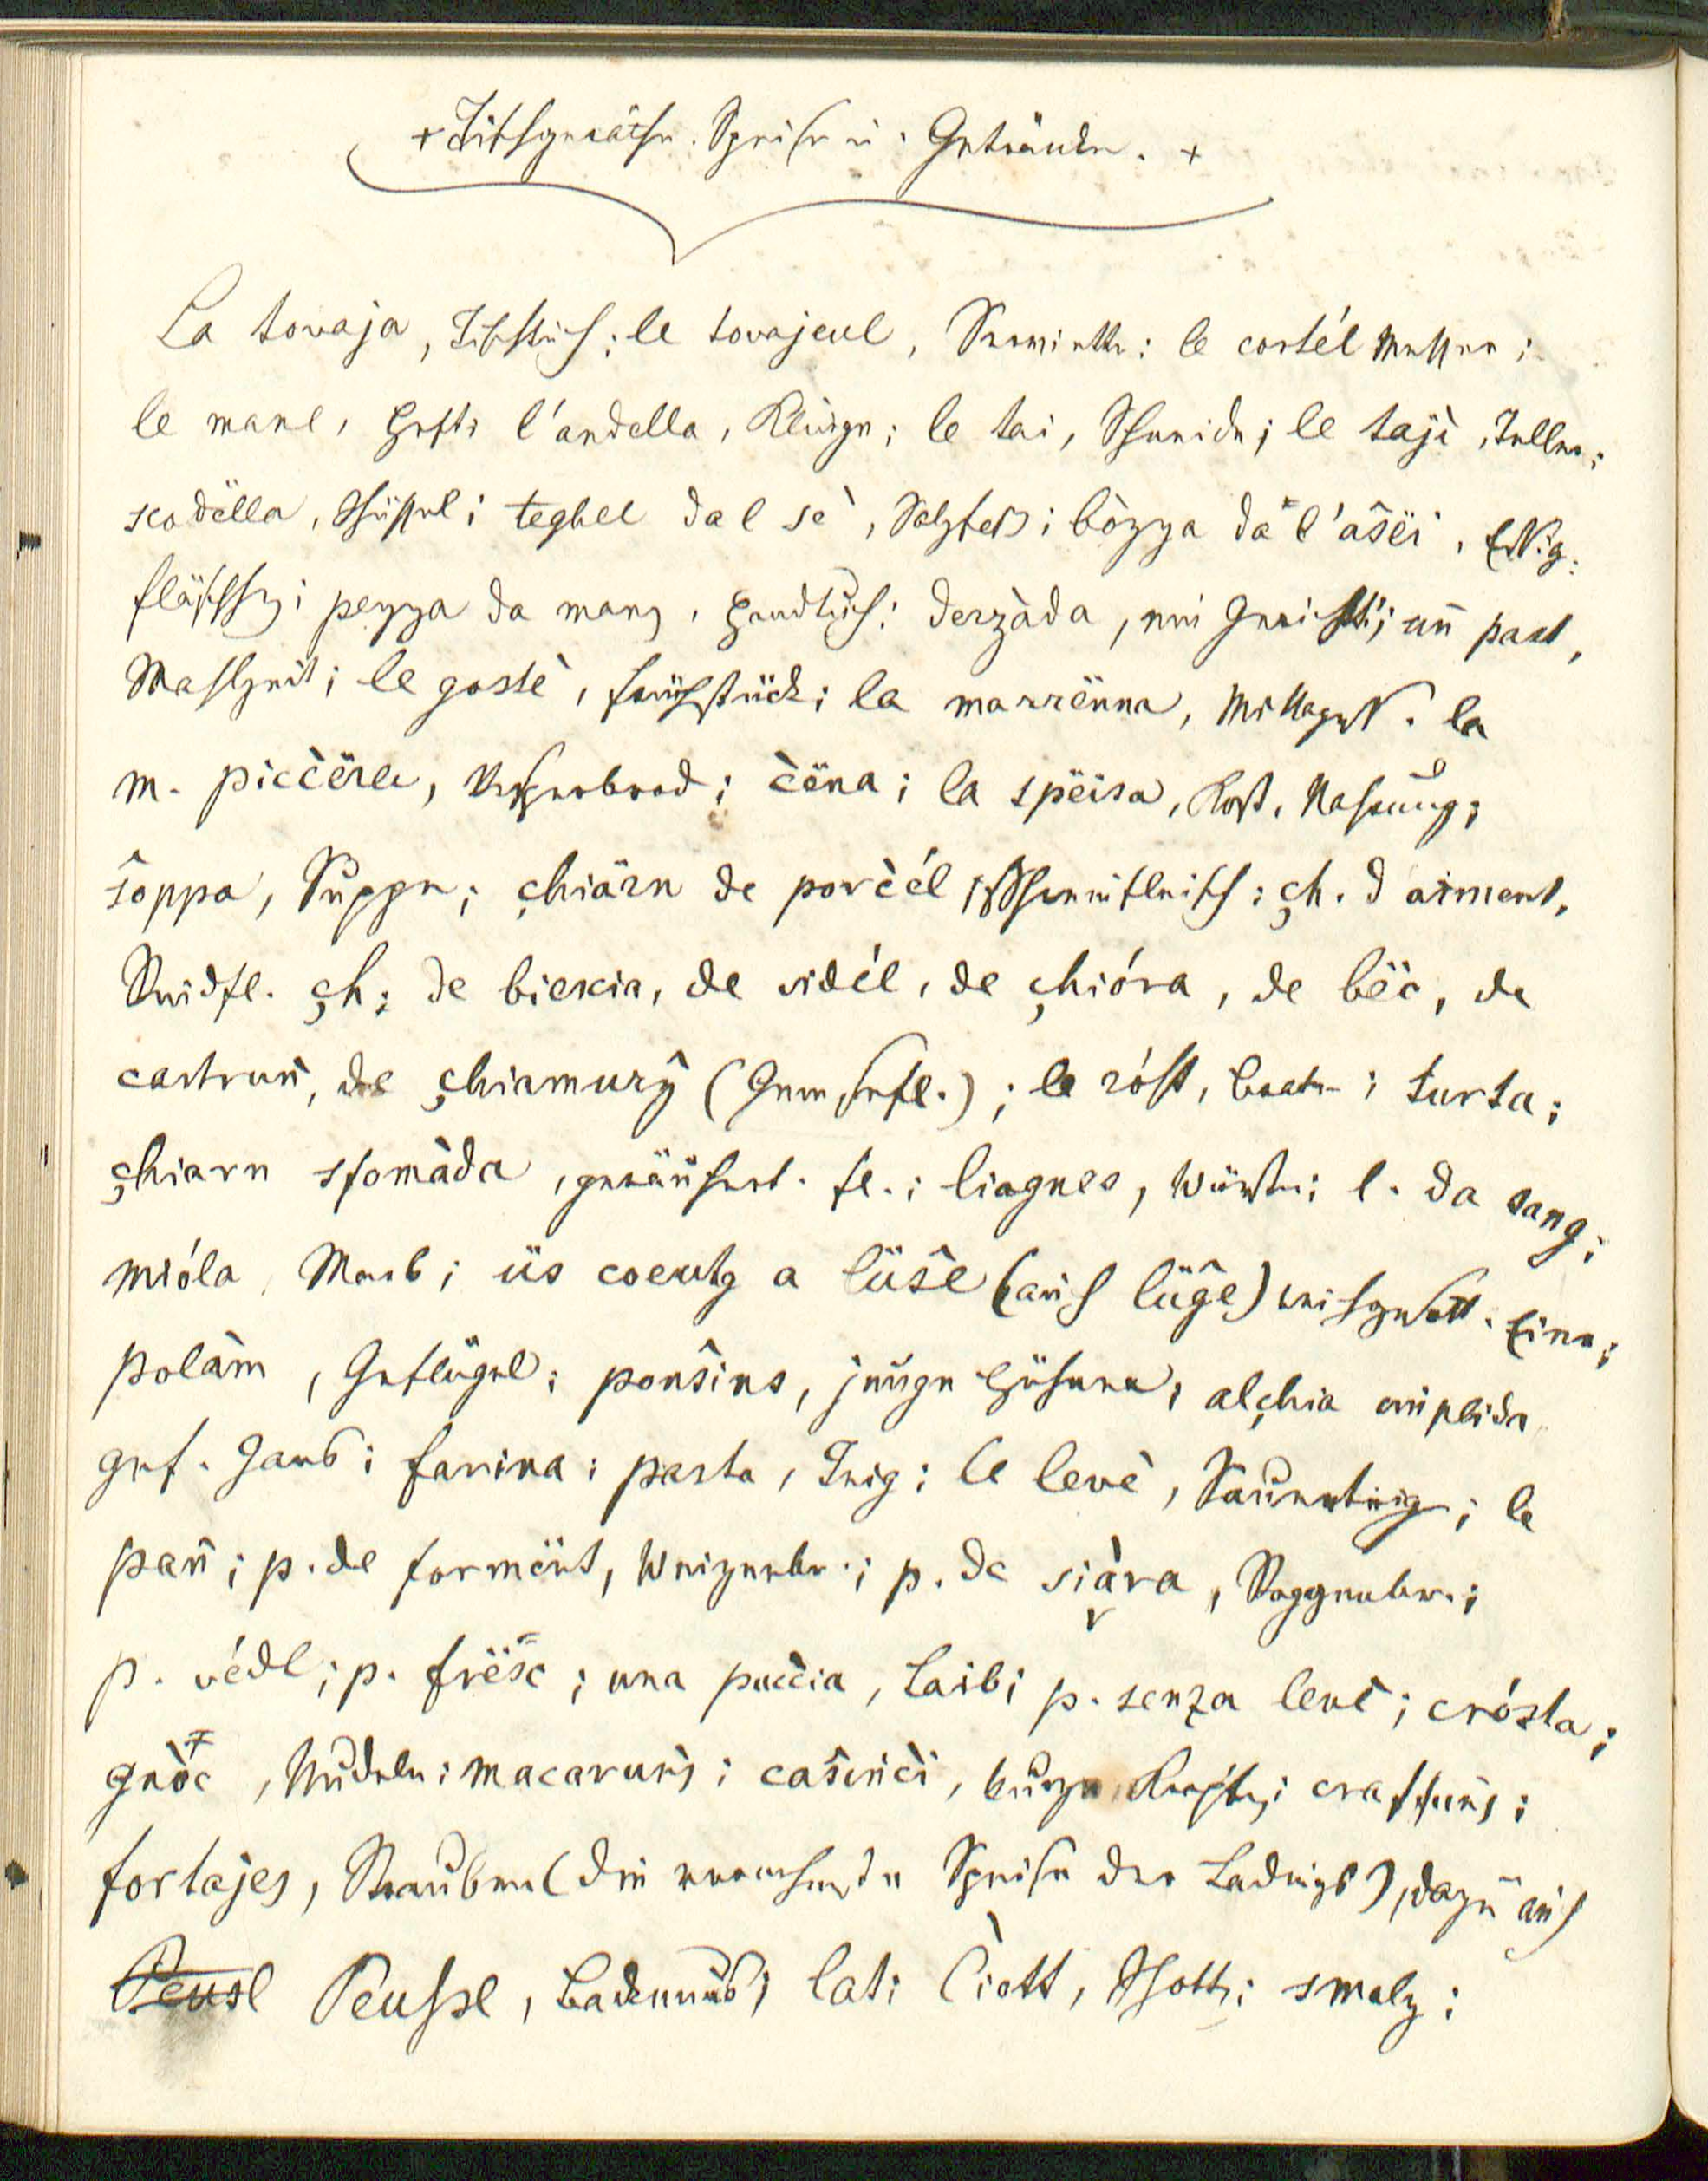 + Tischgeräthe. Speise u. Getränke. +
La tovaja, Tischtuch; le tovajeul, Serviette; le cortél Messer;
le mane, Hefte l'andella, Klinge; le tai, Schneide; le tajè, Teller;
scodëlla, Schüssel; teghel dal sè, Salzfaß; bòzza da l'asëi, Essig-
fläschchen; pezza da mang, Handtuch; derzàda, ein Gericht; un past,
Mahlzeit; le gostè, Frühstück; la marrënna, Mittagess. la
m. piccëra, Vesperbrod; cëna; la spëisa, Kost, Nahrung;
soppa, Suppe; çhiärn de porcél, Schweinfleisch; çh. d'arment,
Rindfl. çh. de biescia, de vidél, de çhióra, de bëc, de
castruñ, de çhiamurz (Gemsefl.); le róst, Brate; turta;
çhiarn sfomàda, geräuchert. fl.; liagnes, Würste; l. da sang;
mióla, Mark; üs coeutg a lüse (auch lüge) weichgesott. Eier;
polàm, Geflügel; ponsins, junge Hühner; alçhia implida
gef. Gans; farina; pasta, Teig; le levè, Sauerteig; le
pañ; p. de formënt, Weizenbr.; p. de siàra, Roggenbr.;
p. védl; p. frësc; una puccia, Laib; p. senza levè; crósta;
gnòc, Nudeln; macaruns; casincì, kurze Krapfen; craffuns;
fortajes, Strauben (die vornehmste Speise der Ladiner), dazu auch
Peusl Peussl, ; lat; ciott, Schotte; smalz;